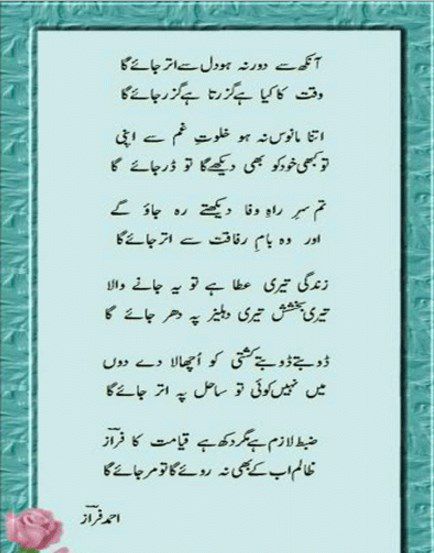 آنکھ سے دور نہ ہو دل سے اتر جائے گا
وقت کا کیا ہے گزرتا ہے گزر جائے گا
اتنا مانوس نہ ہو خلوتِ غم سے اپنی
تو کبھی خود کو بھی دیکھے گا تو ڈر جائے گا
تم سرِ راہِ وفا دیکھتے رہ جاؤ گے
اور وہ بامِ رفاقت سے اتر جائے گا
زندگی تیری عطا ہے تو یہ جانے والا
تیری بخشش تیری دہلیز پہ دھر جائے گا
ڈوبتے ڈوبتے کشتی کو اُچھالا دے دوں
میں نہیں کوئی تو ساحل پہ اتر جائے گا
ضبط لازم ہے مگر دکھ ہے قیامت کا فرازؔ
ظالم اب کے بھی نہ روئے گا تو مر جائے گا
احمد فرازؔ